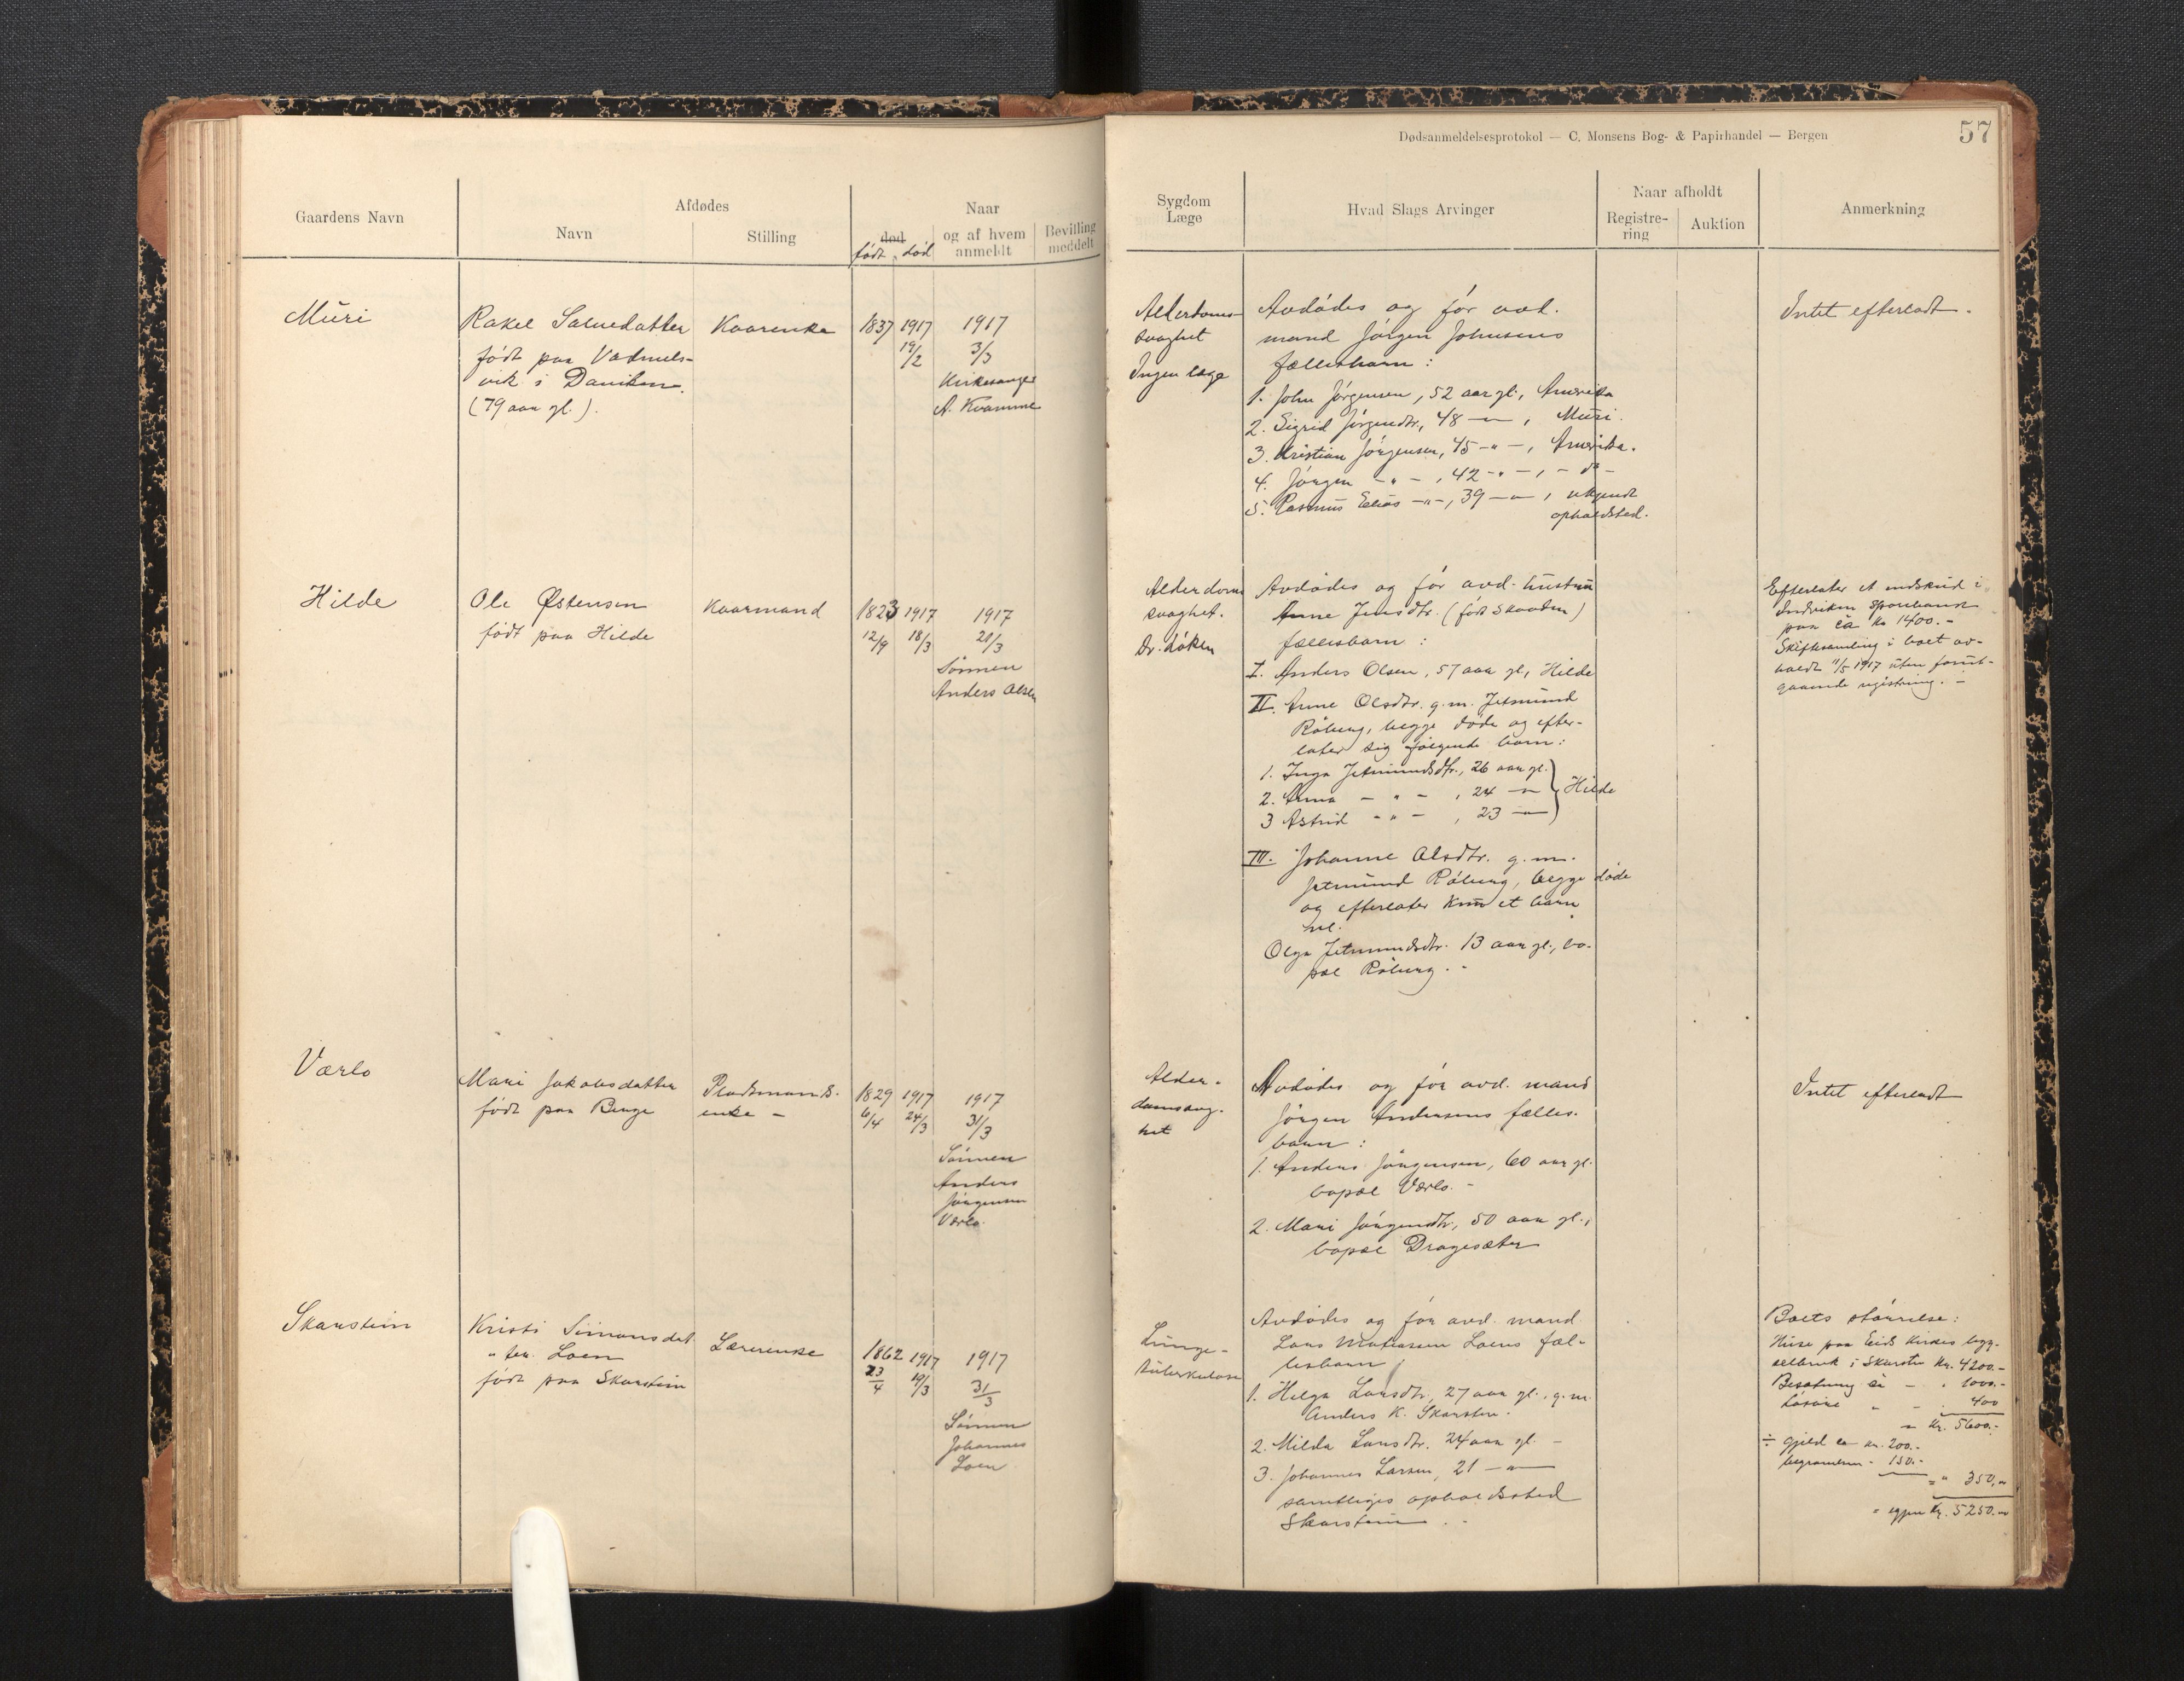 Dødsanmeldelsesprotokol — C. Monsens Bog- & Papirhandel — Bergen
57
Gaardens Navn
Afdødes
Navn
Stilling
Naar
død
født død
og af hvem
anmeldt
Bevilling
meddelt
Sygdom
Læge
Hvad Slags Arvinger
Naar afholdt
Registre-
ring
Auktion
Anmerkning
Muri
Rakel Saluedatter
født paa Vadmels-
vik i Daviken
(79 aar gl.).
Kaarenke
1837 1917
19/2
1917
3/3
Kirkesanger
A. Kvamme
Alderdoms-
svaghet
Ingen læge
Avdødes og før avd.
mand Jørgen Johnsens
fællesbarn:
1. John Jørgensen, 52 aar gl., Amerika
2. Sigrid Jørgensdtr., 48 — " — , Muri.
3. Kristian Jørgensen, 45 - " - , Amerika.
4. Jørgen - " - , 42 - " - , - do -
5. Rasmus Elias - " - , 39 — " — , ukjendt
opholdsted.
Intet efterladt.
Hilde
Ole Østensen
født paa Hilde
Kaarmand
1823 1917
12/9 18/3
1917
21/3
Sønnen
Anders Olsen
Alderdoms
svaghet.
Dr. Løken
Avdødes og før avd. hustru
Anne Jensdtr. (født Skaaden)
fællesbarn:
I. Anders Olsen, 57 aar gl., Hilde
II. Anne Olsdtr. g.m. Jetmund
Råburg, begge døde og efter-
later sig følgende barn:
1. Inga Jetmundsdtr., 26 aar gl.
2. Anna - " - , 24 — " — } Hilde
3 Astrid - " - , 23 — " —
III. Johanne Olsdtr. g.m.
Jetmund Råburg, begge døde
og efterlater kun et barn
nl.
Olga Jetmundsdtr. 13 aar gl., bo-
pæl Råburg. -
Efterlater et indskud i
Indviken Sparebank
paa ca kr 1400. -
Skiftesamling i boet av-
holdt 11/5 1917 uten forut-
gaaende registrering. -
Værlo
Mari Jakobsdatter
født paa Berge
Pladsmands-
enke -
1829 1917
6/4 24/3
1917
31/3
Sønnen
Anders
Jørgensen
Værlo.
Alder-
domsvag-
het
Avdødes og før avd. mand
Jørgen Andersens fælles-
barn:
1. Anders Jørgensen, 60 aar gl.
bopæl Værlo. -
2. Mari Jørgensdtr., 50 aar gl.,
bopæl Dragesæter
Intet efterladt
Skarstein
Kristi Simonsdat
" ter Loen
født paa Skarstein
Lærerenke
1862 1917
23/4 19/3
1917
31/3
Sønnen
Johannes
Loen
Lunge-
tuberkulose
Avdødes og før avd. mand
Lars Matiassen Loens fæl-
lesbarn
1. Helga Larsdtr, 27 aar gl., g.m.
Anders K. Skarstein.
2. Milda Larsdtr. 24 aar gl. -
3. Johannes Larsen, 21 — " —
samtliges opholdssted
Skarstein. -
Boets størrelse:
Huse paa Eids Kirkes byg-
selbruk i Skarsten kr. 4200.-
Besætning ca - " 1000.-
Løsøre " - " 400
= kr. 5600.-
÷ gjeld ca kr. 200.-
begravelsen - 150.-
= " 350,-
= kr. 5250.-